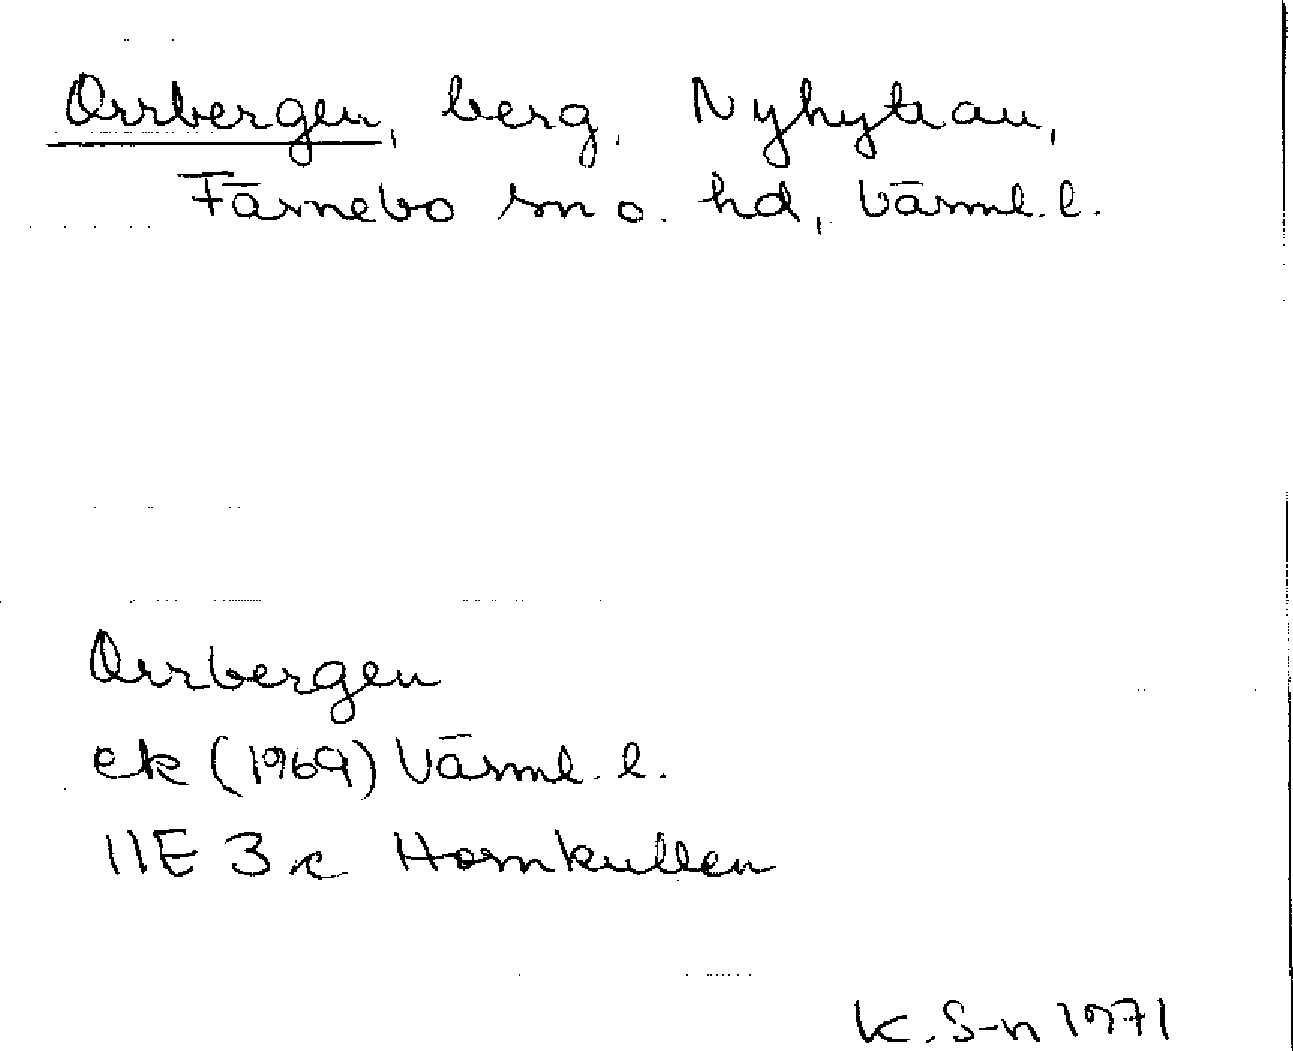 Orrbergen, berg, Nyhyttan,
Färnebo sn o. hd, Värml. l.
Orrbergen
ek (1969) Värml. l.
11E 3c Hornkullen
K. S-n 1971